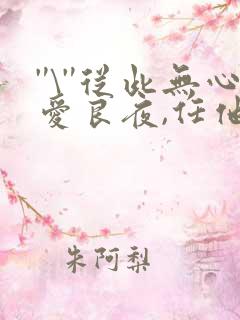 "\"從此無心
愛良夜,任他
朱阿梨